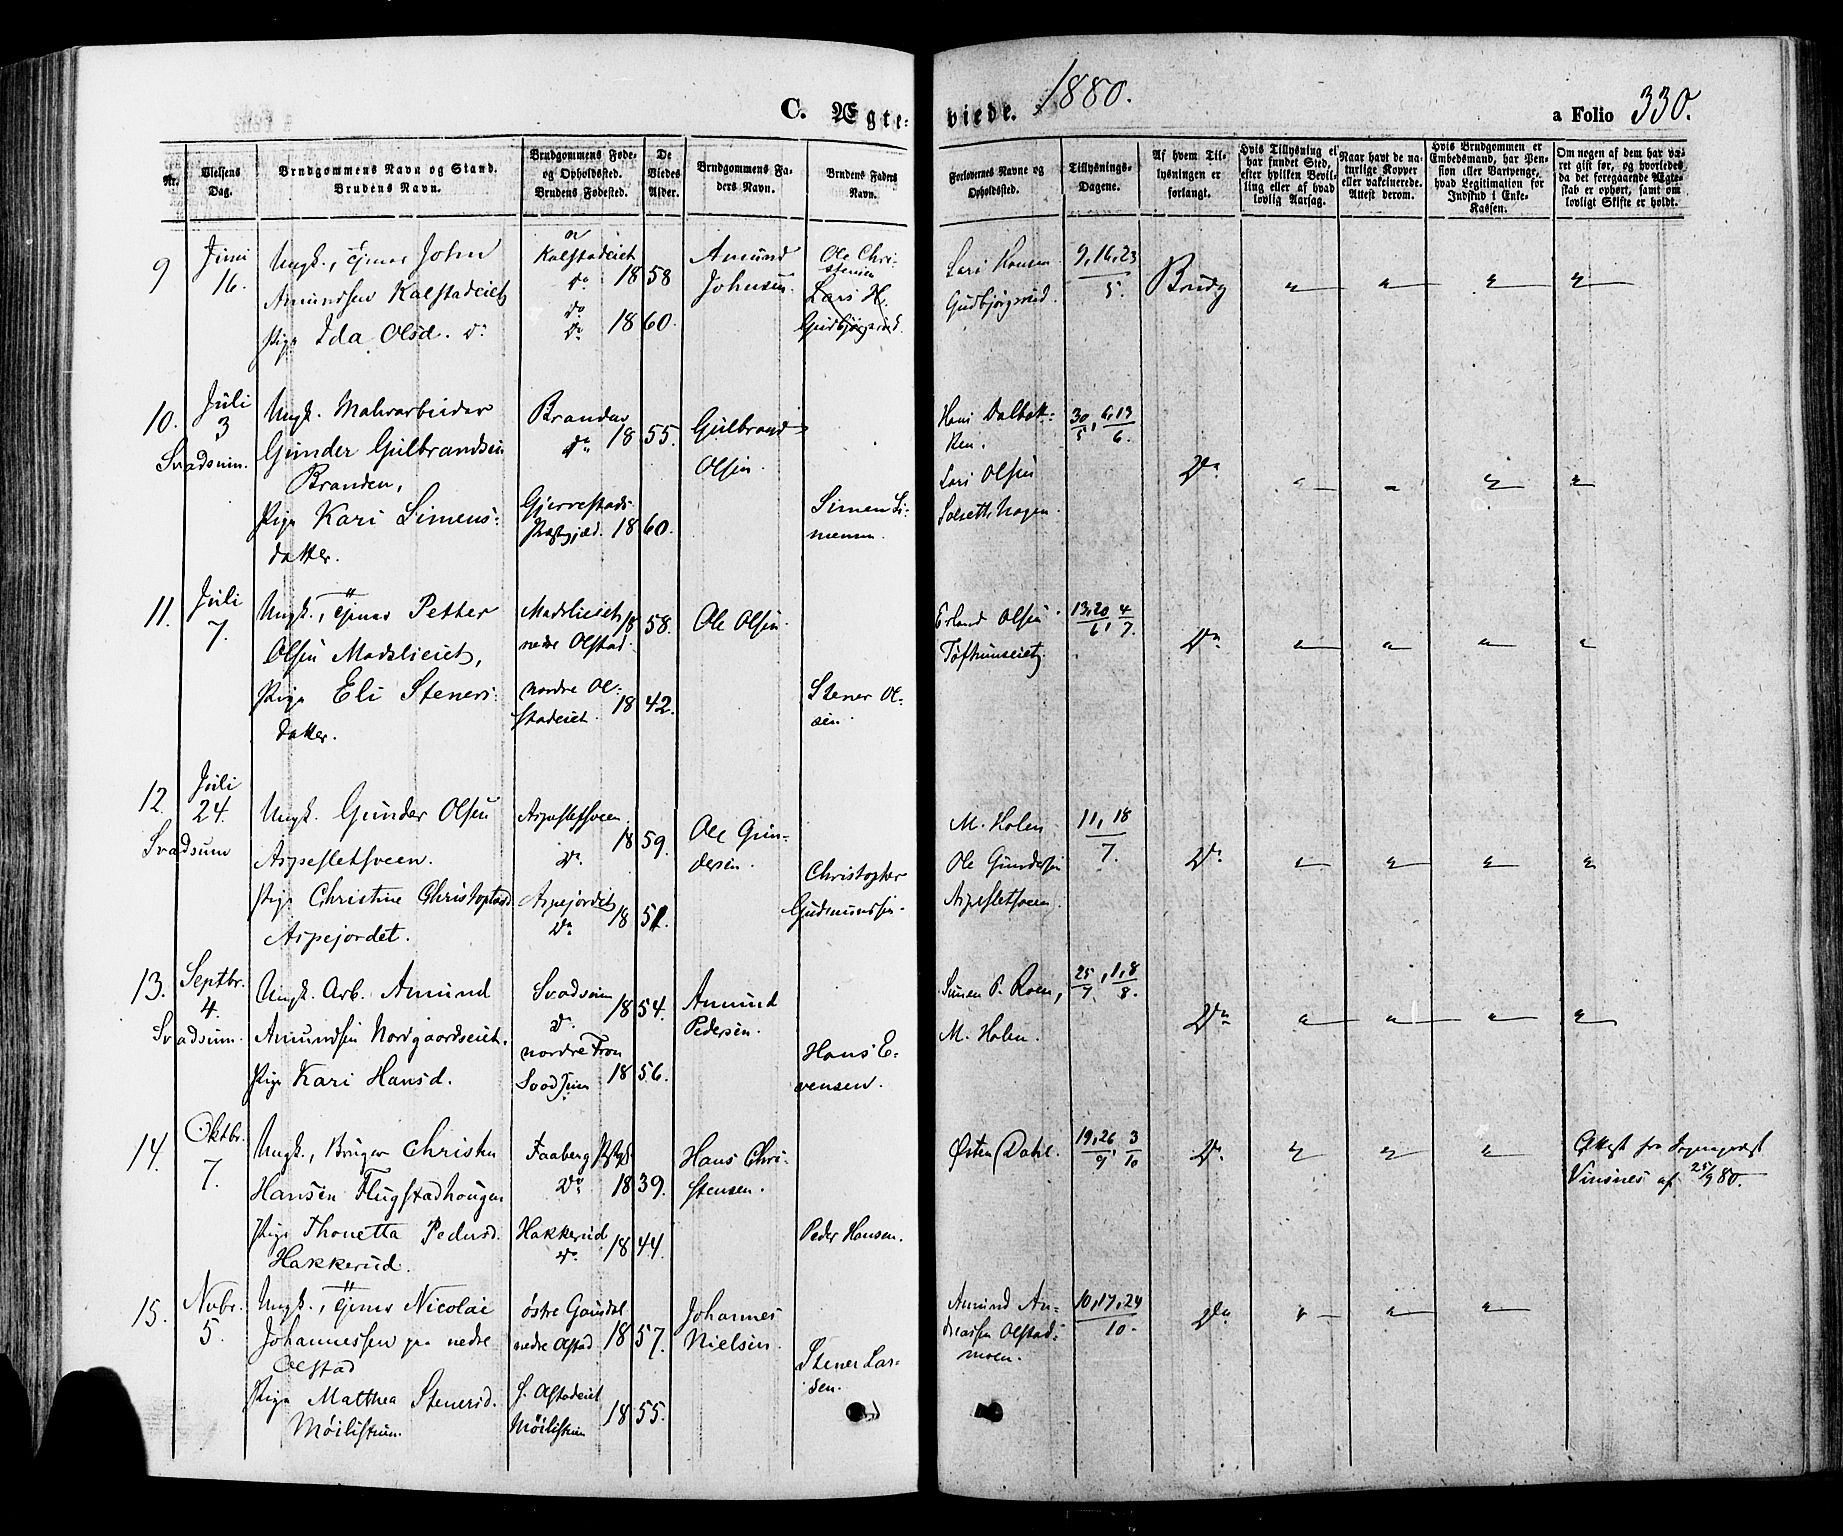 C. Ægte-
viede.
1880.
a Folio 330.
Nr.
Vielsens Dag.
Brudgommens Navn og Stand.
Brudens Navn.
Brudgommens Føde-
og Opholdssted.
Brudens Fødested.
De
Viedes
Alder.
Brudgommens Fa-
ders Navn.
Brudens Faders
Navn.
Forlovernes Navne og
Opholdssted.
Tillysnings-
Dagene.
Af hvem Til-
lysningen er
forlangt.
Hvis Tillysning ei
har fundet Sted,
efter hvilken Bevil-
ling eller af hvad
lovlig Aarsag.
Naar havt de na-
turlige Kopper
eller vakcinerede.
Attest derom.
Hvis Brudgommen er
Embedsmand, har Pen-
sion eller Vartpenge,
hvad Legitimation for
Indskud i Enke-
Kassen.
Om nogen af dem har væ-
ret gift før, og hvorledes
da det foregaaende Ægte-
skab er ophørt, samt om
lovligt Skifte er holdt.
9
Juni
16.
Ungk., tjener John
Amundsen Kalstadeiet
Pige Ida Olsd. do
Kalstadeiet
do 1858
do
do 1860.
Amund
Johnsen.
Ole Chri-
stensen
Lars H.
Gudbjørgsrud.
Lars Hansen
Gudbjørgsrud.
9, 16, 23
5.
Brudg
10.
Juli
3
Svadsum.
Ungk. Malerarbeider
Gunder Gulbrandsen
Branden,
Pige Kari Simens-
datter.
Branden
do 1855.
Gjerrestads
Præstgjæld. 1860.
Gulbrand
Olsen.
Simen Si-
mensen.
Hans Dalbak-
ken.
Lars Olsen
Solsethhagen.
30/5, 6, 13/6.
Do
11.
Juli
7.
Ungk., tjener Petter
Olsen Madslieiet,
Pige Eli Steners-
datter.
Madslieiet 1858.
nedre Olstad.
nordre Ol-
stadeiet. 1842.
Ole Olsen.
Stener Ol-
sen.
Erland Olsen
Tofthuseiet.
13, 20/6, 4/7.
Do
12
Juli
24.
Svadsum
Ungk. Gunder Olsen
Aspesletsveen.
Pige Christine Christophersd.
Aspejordet.
Aspesletsveen.
do 1859.
Aspejordet
do 1851.
Ole Gun-
dersen.
Christopher
Gudmundsen.
M. Holen.
Ole Gundersen
Aspesletsveen.
11, 18
7.
Do
13.
Septbr.
4.
Svadsum.
Ungk. Arb. Amund
Amundsen Nordgaardseiet.
Pige Kari Hansd.
Svadsum
do 1854.
nordre Fron
Svadsum 1856.
Amund
Pedersen.
Hans E-
vensen.
Simen P. Roen,
M. Holen.
25/7, 1, 8/8.
Do
14.
Oktbr.
7.
Ungk., Bruger Christen
Hansen Flugstadhougen
Pige Thonetta Pedersd.
Hakkerud.
Faaberg Pstgd.
do 1839.
Hakkerud
do 1844.
Hans Chri-
stensen.
Peder Hansen.
Østen Dahl.
19, 26/9, 3/10
Do
Attest fra Sogneprest
Vinsnes af 25/9 80.
15.
Novbr.
5.
Ungk., tjener Nicolai
Johannessen paa nedre
Olstad
Pige Matthea Stenersd.
Møilistuen.
østre Gausdal
nedre Olstad 1857.
S. Olstadeiet
Møilistuen 1855.
Johannes
Nielsen.
Stener Lar-
sen.
Amund An-
dreassen Olstad-
moen.
10, 17, 24
10.
Do